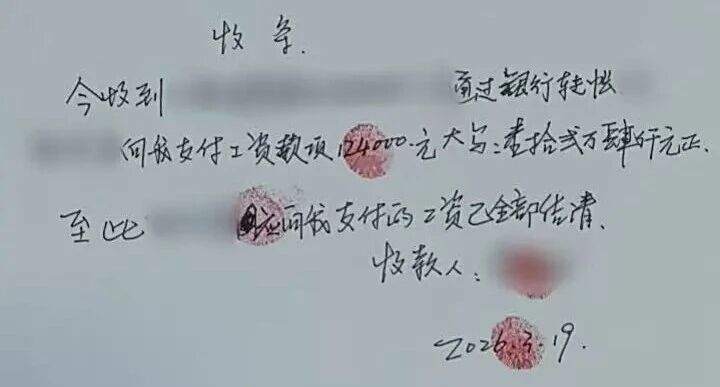 收条.
今收到 通过银行转帐
向我支付工资款项124000.元大写:壹拾贰万肆仟元正.
至此 应向我支付的工资已全部结清、
收款人:
2026.3.19.